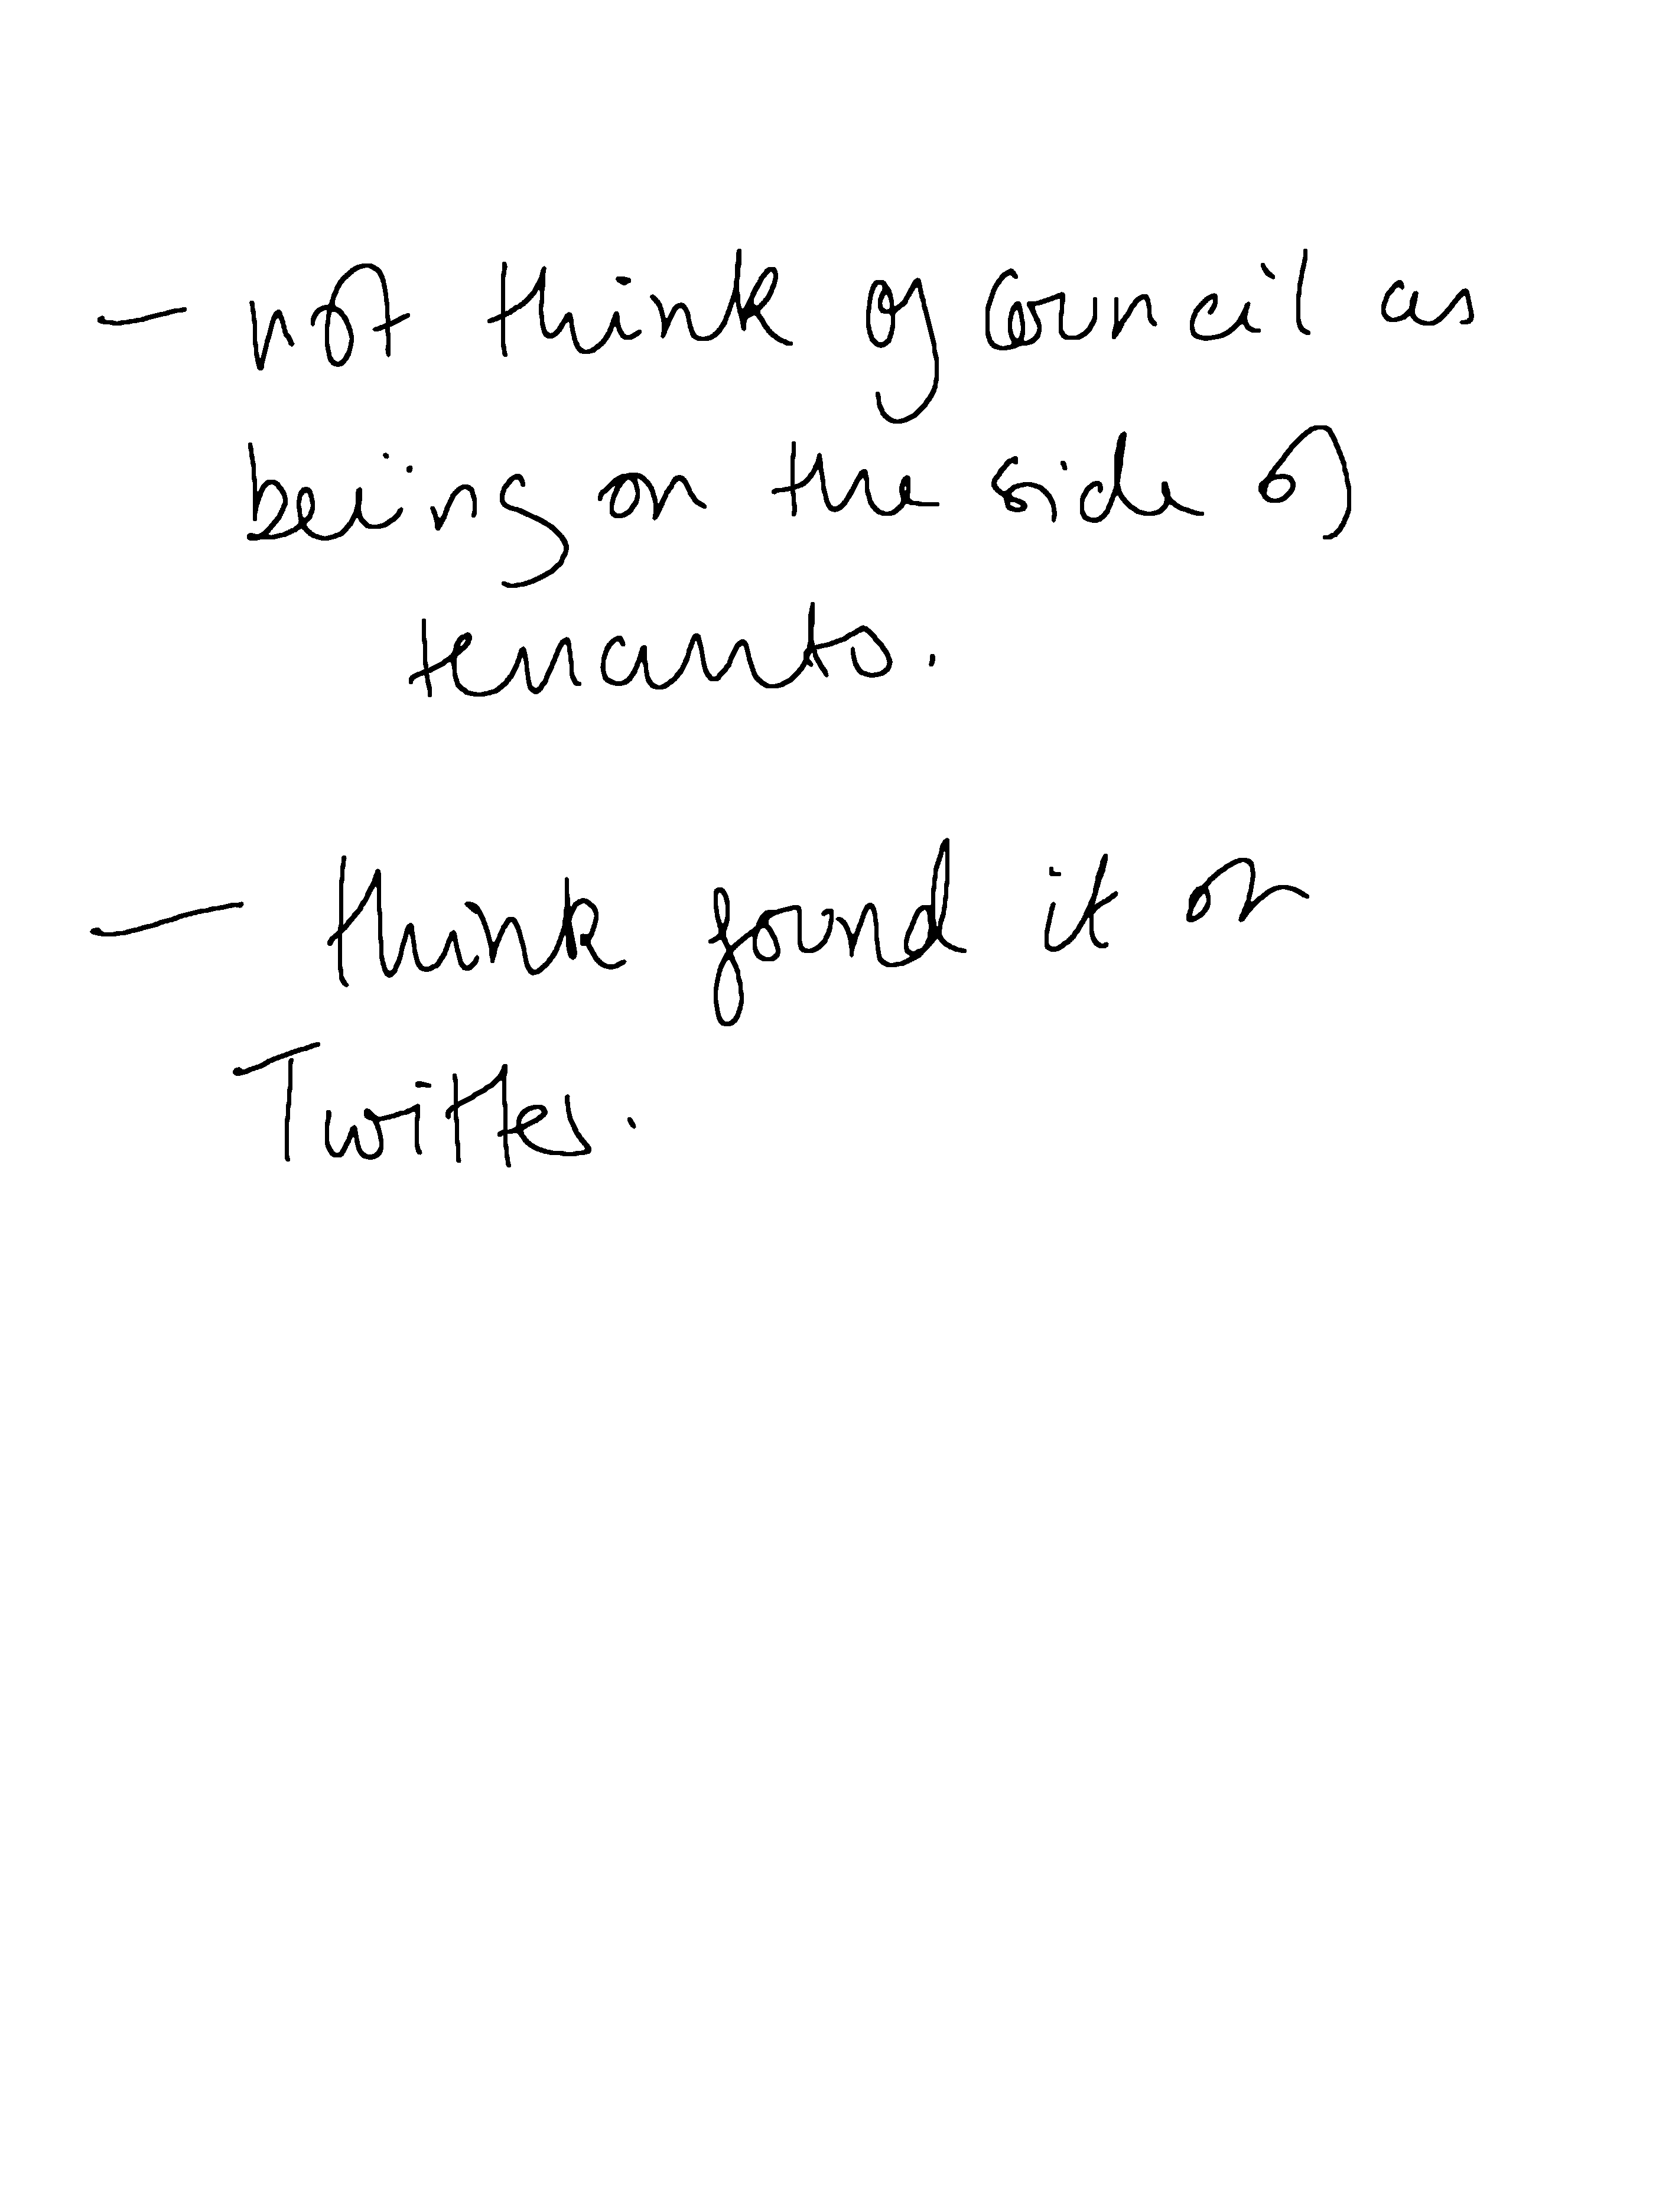 - not think of Council as
being on the side of
tenants.
- think found it on
Twitter.